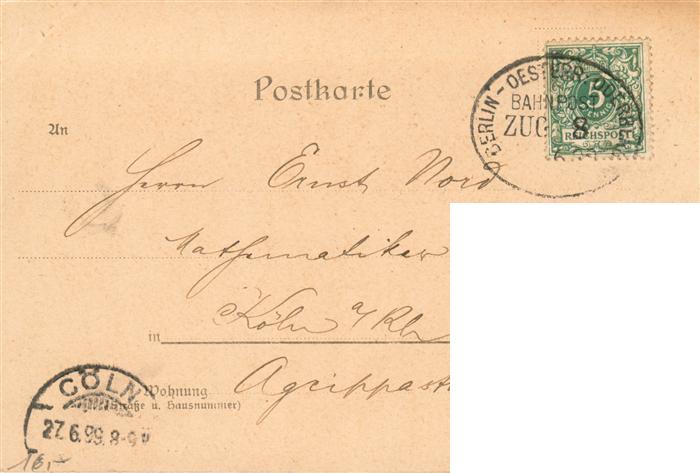 Postkarte
BERLIN - OESTEBR
BAHNPOST
ZUG 8
5
REICHSPOST
An
Herrn Ernst Nord
Mathematiker
in Köln a/Rh
Wohnung
(Straße u. Hausnummer)
Agrippastr
CÖLN
27.6.99.8-9